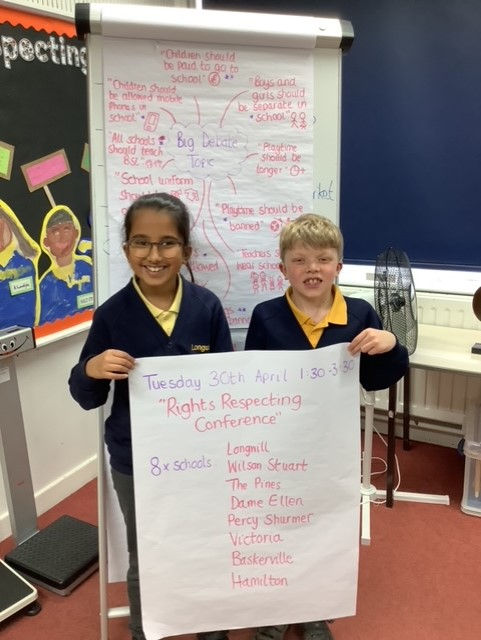 specting
"Children should
be paid to go to
school"
"Children should
be allowed mobile
phones in
school"
"Boys and
girls should
be separate in
school"
All schools
should teach
BSL"
Big Debate
Topic
Playtime
should be
longer"
"School uniform
"Playtime should be
banned"
Teachers
wear
Longwi
Tuesday 30th April 1:30-3:30
"Rights Respecting
Conference"
8x schools
Longmill
Wilson Stuart
The Pines
Dame Ellen
Percy Shurmer
Victoria
Baskerville
Hamilton